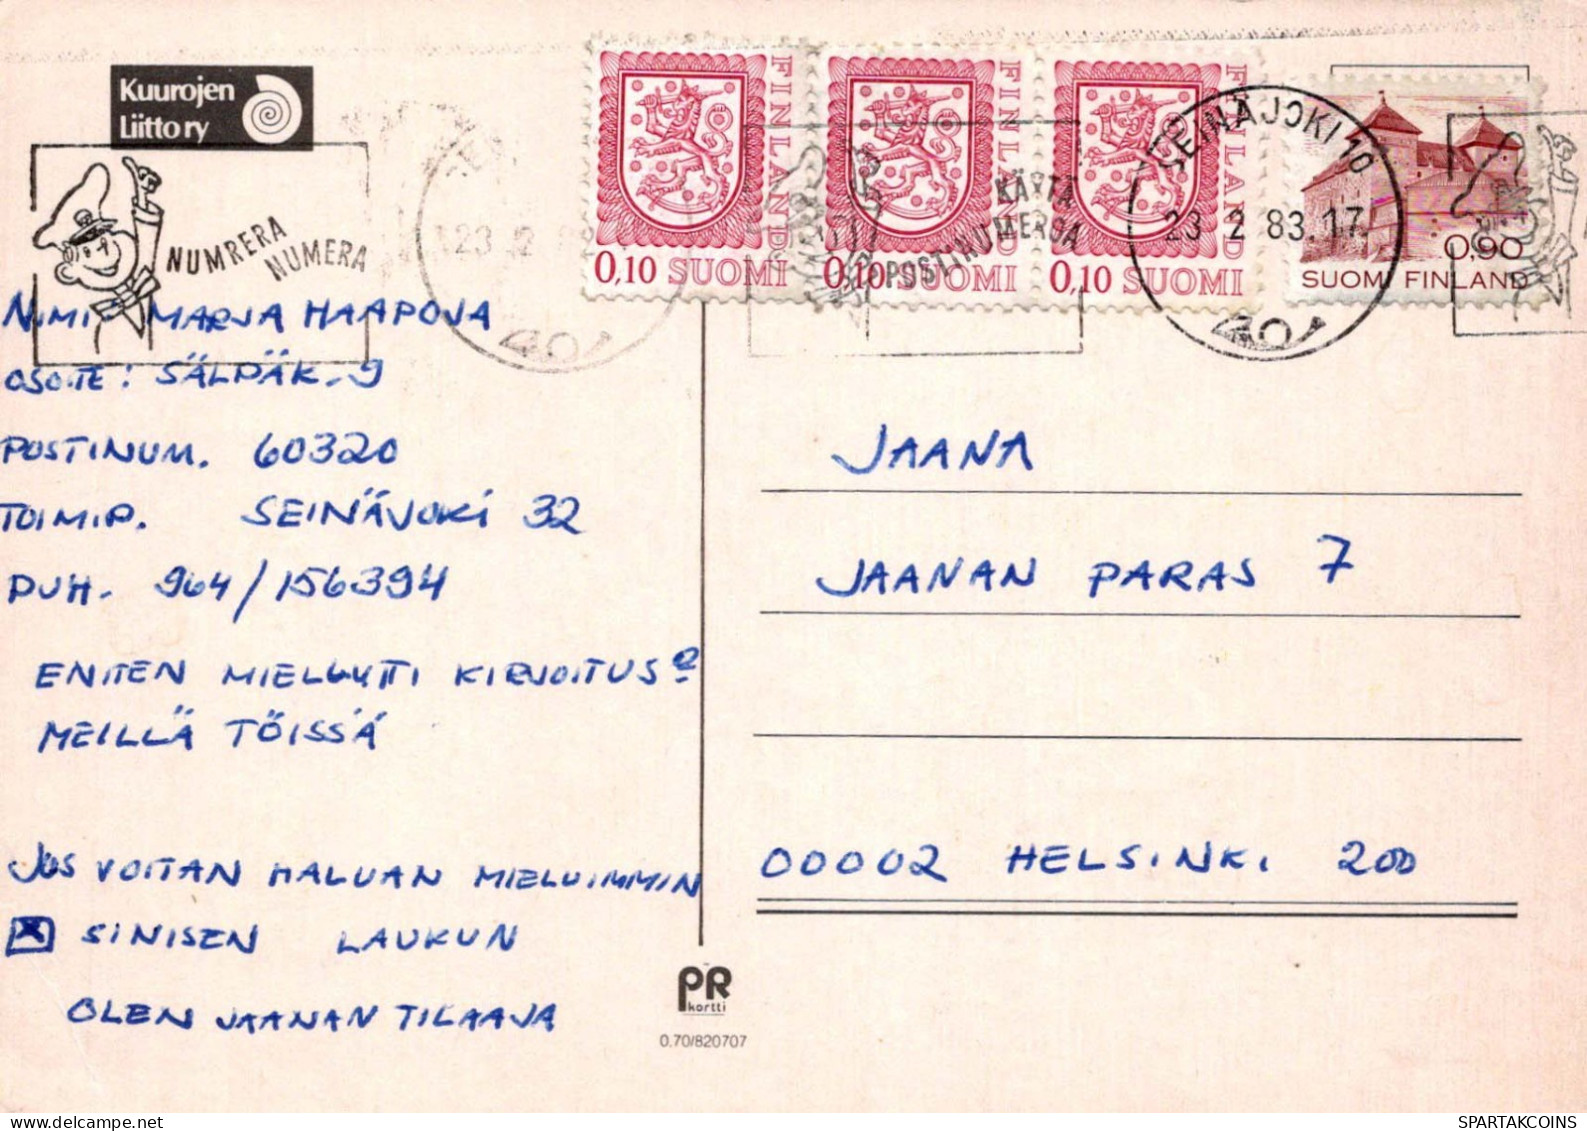 Kuurojen
Liitto ry
NUMRERA
NUMERA
FINLAND
0,10 SUOMI
FINLAND
0,10 SUOMI
FINLAND
0,10 SUOMI
KÄYTÄ
POSTINUMEROA
SEINÄJOKI 10
23 2 83.17
0,90
SUOMI FINLAND
23 2 8
NIMI MARJA HAAPOJA
OSOITE: SÄLPÄK. 9
POSTINUM. 60320
TOIMIP. SEINÄJOKI 32
PUH. 964/156394
ENITEN MIELLYTTI KIRJOITUS
MEILLÄ TÖISSÄ
JOS VOITAN HALUAN MIELUIMMIN
X SINISEN LAUKUN
OLEN JAANAN TILAAJA
JAANA
JAANAN PARAS 7
00002 HELSINKI 200
PR
kortti
0.70/820707
SPARTAKCOINS